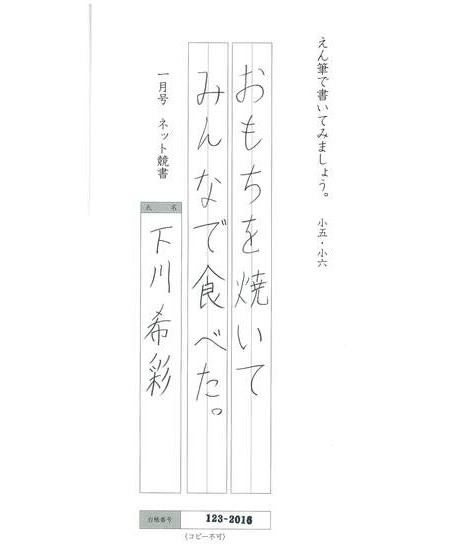 えん筆で書いてみましょう。 小五・小六
おもちを焼いて
みんなで食べた。
一月号 ネット競書
氏名
下川希彩
台帳番号 123-2016
(コピー不可)